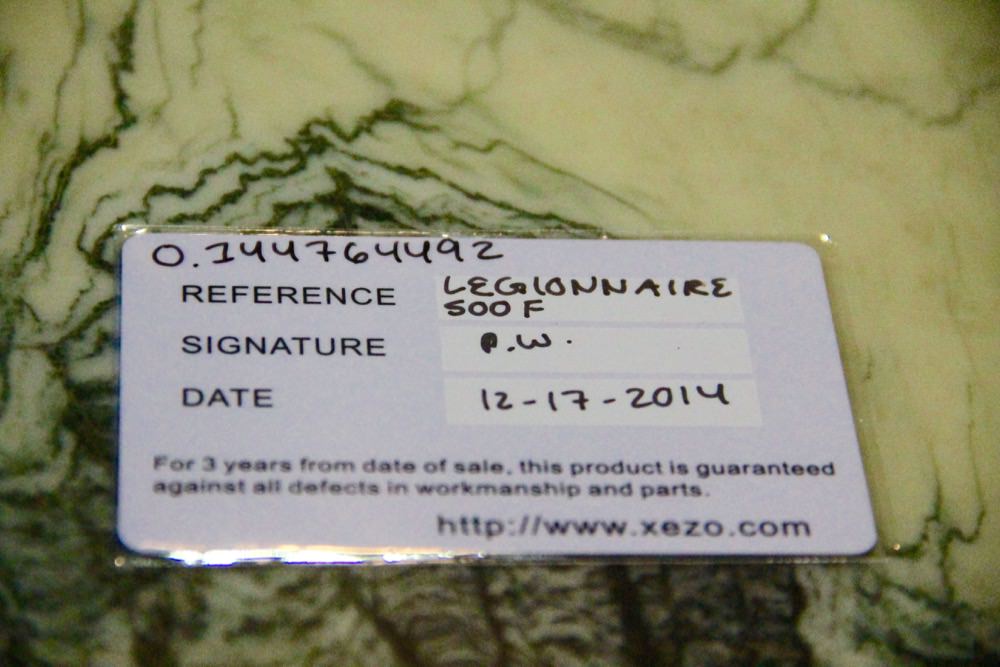 0.144764492
REFERENCE LEGIONNAIRE
500 F
SIGNATURE P.W.
DATE 12-17-2014
For 3 years from date of sale, this product is guaranteed
against all defects in workmanship and parts.
http://www.xezo.com